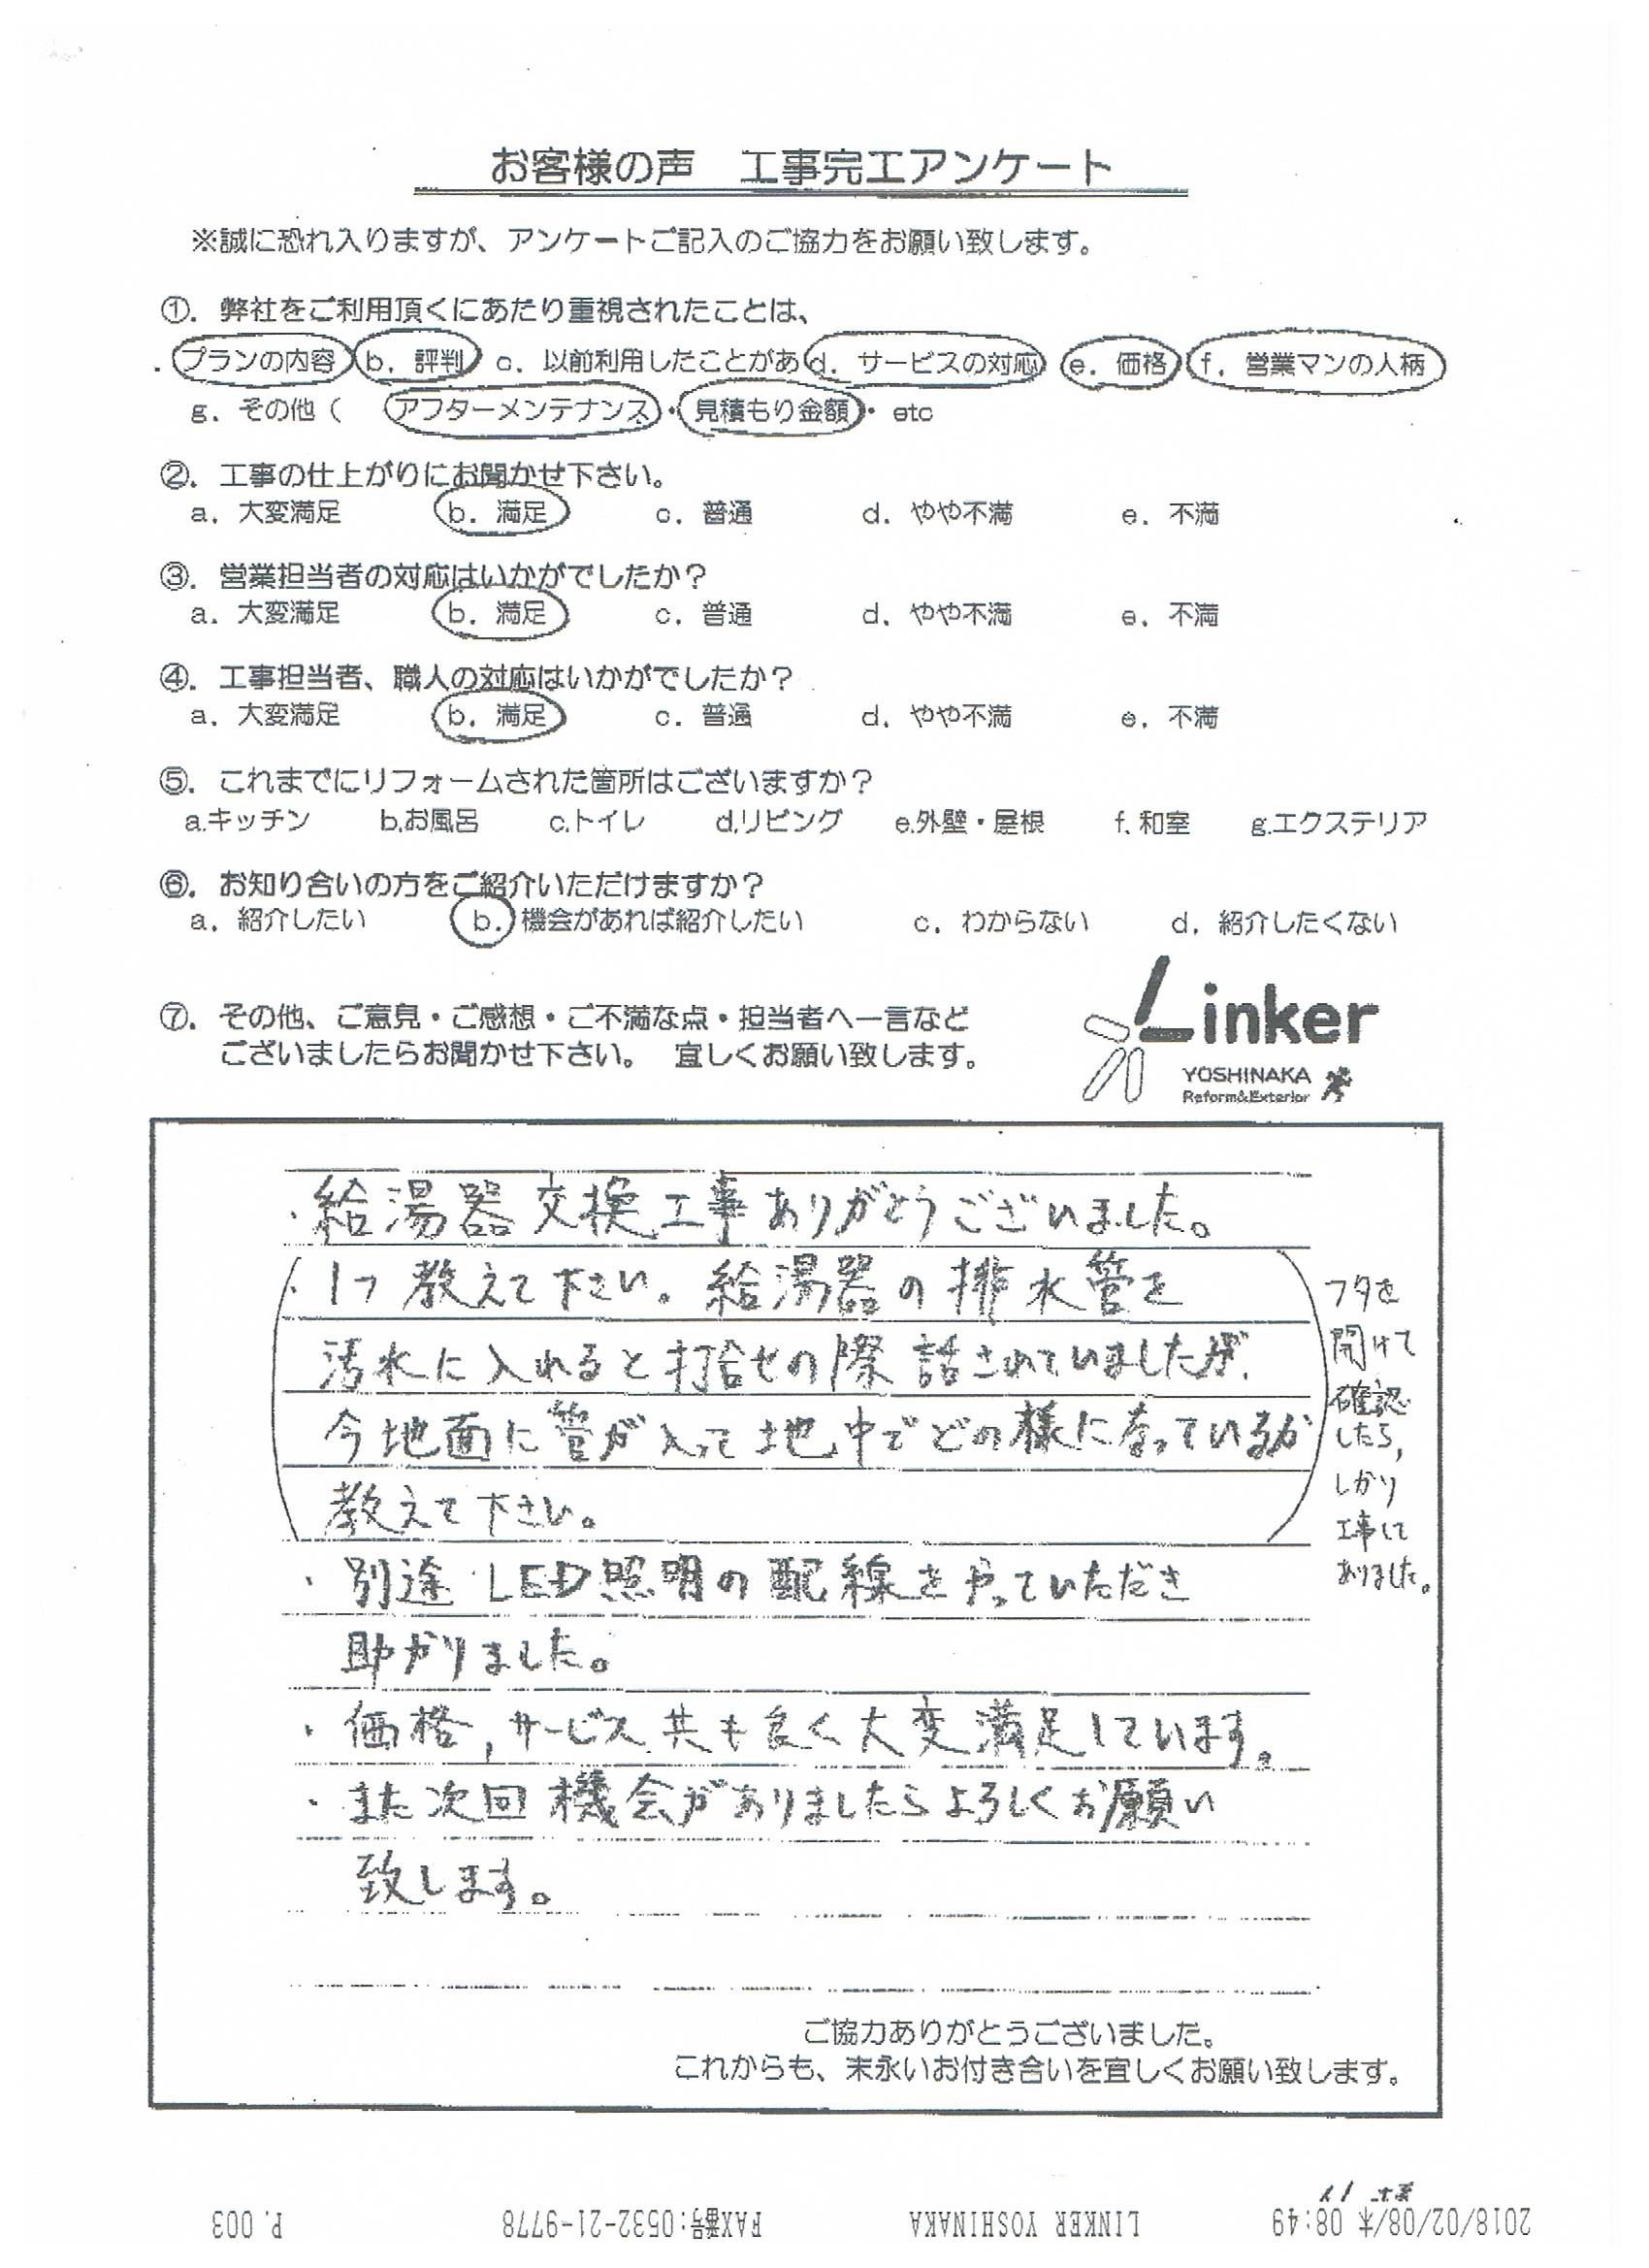 お客様の声　工事完工アンケート
※誠に恐れ入りますが、アンケートご記入のご協力をお願い致します。
①．弊社をご利用頂くにあたり重視されたことは、
プランの内容 b．評判 c．以前利用したことがあ d．サービスの対応 e．価格 f．営業マンの人柄
g．その他（　アフターメンテナンス・見積もり金額・ etc
②．工事の仕上がりにお聞かせ下さい。
a．大変満足 b．満足 c．普通 d．やや不満 e．不満
③．営業担当者の対応はいかがでしたか？
a．大変満足 b．満足 c．普通 d．やや不満 e．不満
④．工事担当者、職人の対応はいかがでしたか？
a．大変満足 b．満足 c．普通 d．やや不満 e．不満
⑤．これまでにリフォームされた箇所はございますか？
a.キッチン b.お風呂 c.トイレ d.リビング e.外壁・屋根 f.和室 g.エクステリア
⑥．お知り合いの方をご紹介いただけますか？
a．紹介したい b．機会があれば紹介したい c．わからない d．紹介したくない
⑦．その他、ご意見・ご感想・ご不満な点・担当者へ一言など
ございましたらお聞かせ下さい。　宜しくお願い致します。
Linker
YOSHINAKA
Reform&Exterior
・給湯器交換工事ありがとうございました。
・1つ教えて下さい。給湯器の排水管を
汚水に入れると打合せの際話されていましたが、
今地面に管が入って地中でどの様になっているか
教えて下さい。
フタを
開けて
確認
したら,
しかり
工事して
ありました。
・別途 LED照明の配線をやっていただき
助かりました。
・価格,サービス共も良く大変満足しています。
・また次回機会がありましたらよろしくお願い
致します。
ご協力ありがとうございました。
これからも、末永いお付き合いを宜しくお願い致します。
2018/02/08/木 08:49 LINKER YOSHINAKA FAX番号:0532-21-9778 P. 003